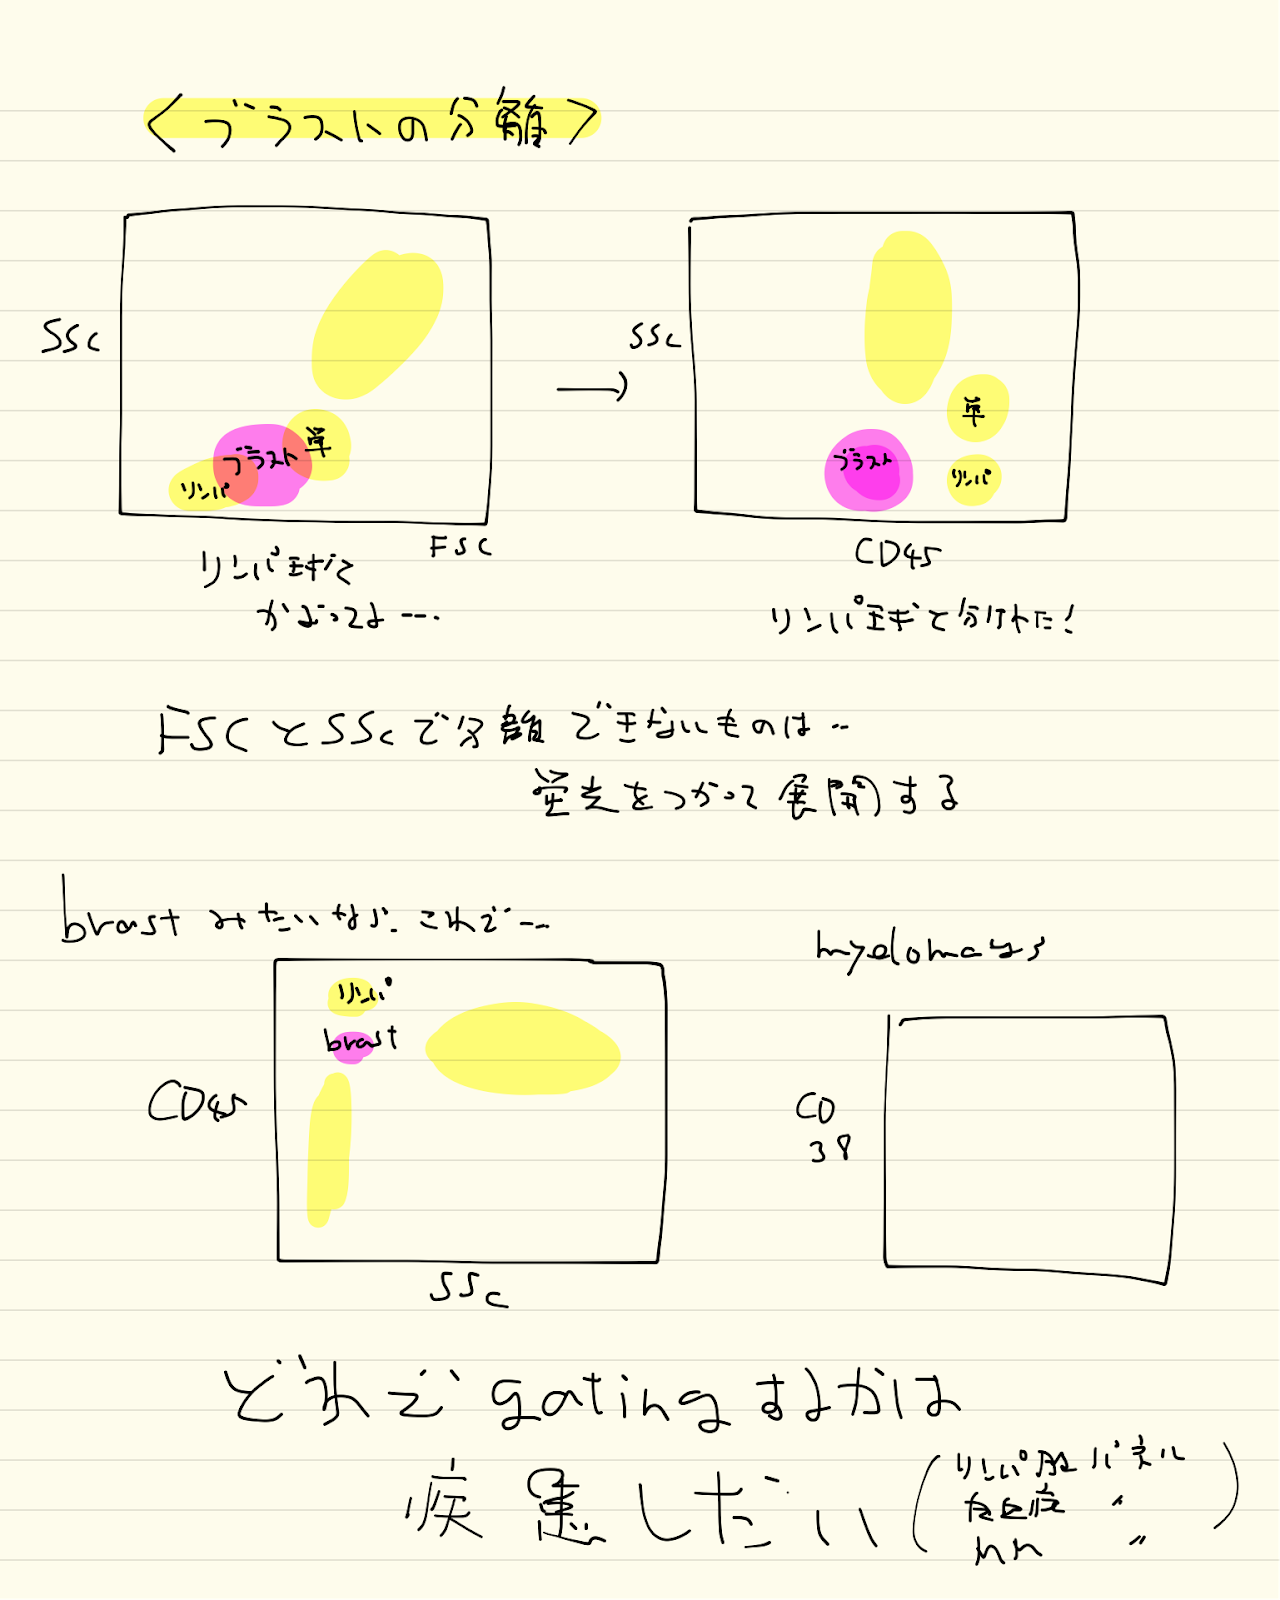 <ブラストの分離>
SSC
単
ブラスト
リンパ
FSC
リンパ球と
かぶってる….
→
SSC
単
ブラスト
リンパ
CD45
リンパ球と分けれた!
FSCとSSCで分離できないものは‥
蛍光をつかって展開する
brastみたいなら、これで…
リンパ
brast
CD45
SSC
myelomaなら
CD
38
どれでgatingするかは
疾患しだい
(リンパ腫パネル
白血病 〃
MM 〃)